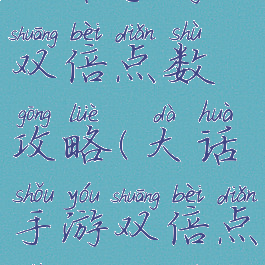 shuāng bèi diǎn shù
双倍点数
gōng lüè dà huà
攻略(大话
shǒu yóu shuāng bèi diǎn
手游双倍点